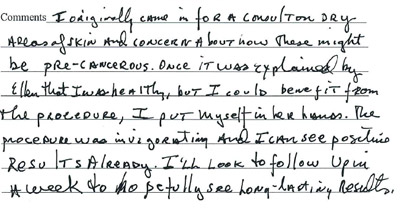 Comments I originally came in for a consult on dry
areas of skin and concern about how these might
be pre-cancerous. Once it was explained by
Ellen that I was healthy, but I could benefit from
the procedure, I put myself in her hands. The
procedure was invigorating and I can see positive
results already. I'll look to follow up in
a week to hopefully see long-lasting results.